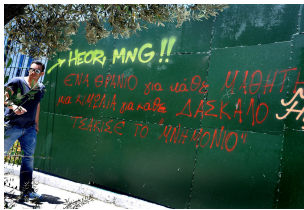 HEOR, MNG !!
ΕΝΑ ΘΡΑΝΙΟ για κάθε ΜΑΘΗΤΗ
μια ΚΙΜΩΛΙΑ για κάθε ΔΑΣΚΑΛΟ
ΤΣΑΚΙΣΕ ΤΟ "ΜΝΗΜΟΝΙΟ"